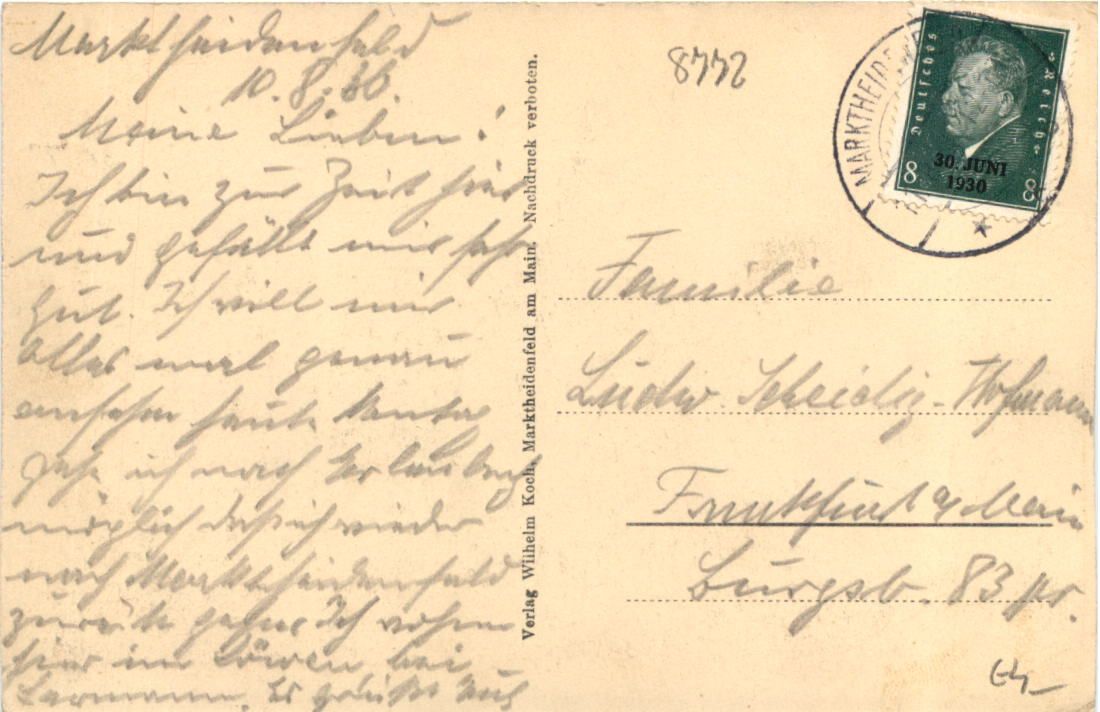 Marktheidenfeld
10. 8. 30.
Meine Lieben!
Ich bin zur Zeit hier
und gefällt mir sehr
gut. Ich will mir
Alles mal genau
ansehen heute
gehe ich nach
möglich daß ich wieder
nach Marktheidenfeld
zurück gehe Ich wohne
hier im Löwen bei
Es grüßt Euch
Verlag Wilhelm Koch, Marktheidenfeld am Main. Nachdruck verboten.
8772
MARKTHEIDE
Deutsches Reich
30. JUNI
1930
8 8
Familie
Ludw. Scheidig-Hofmann
Frankfurt a/Main
Burgstr. 83 pr.